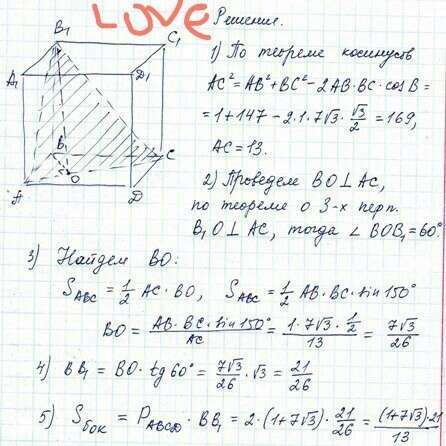 LOVE
Решение.
1) По теореме косинусов
AC² = AB² + BC² - 2AB·BC·cosB =
= 1 + 147 - 2·1·7√3·√3/2 = 169,
AC = 13.
2) Проведем BO ⊥ AC,
по теореме о 3-х перп.
B₁O ⊥ AC, тогда ∠BOB₁ = 60°
B₁
C₁
A₁
D₁
B
C
O
A
D
3) Найдем BO:
S_ABC = 1/2 AC·BO, S_ABC = 1/2 AB·BC·sin150°
BO = AB·BC·sin150°/AC = 1·7√3·1/2/13 = 7√3/26
4) BB₁ = BO·tg60° = 7√3/26·√3 = 21/26
5) S_бок = P_ABCD·BB₁ = 2·(1+7√3)·21/26 = (1+7√3)21/13